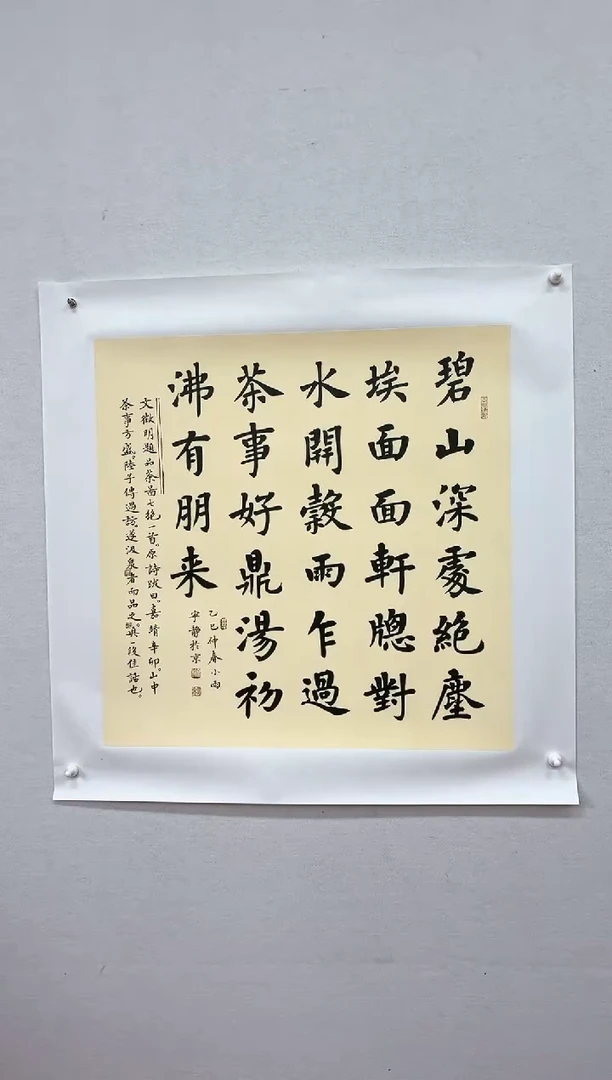 碧山深處絶塵
埃面面軒牕對
水開穀雨乍過
茶事好鼎湯初
沸有朋来
乙巳仲春小雨
宁靜於京
文徵明題品茶圖七绝一首。原詩跋曰。嘉靖辛卯。山中
茶事方盛。陸子傳過訪。遂汲泉煮而品之。真一段佳話也。